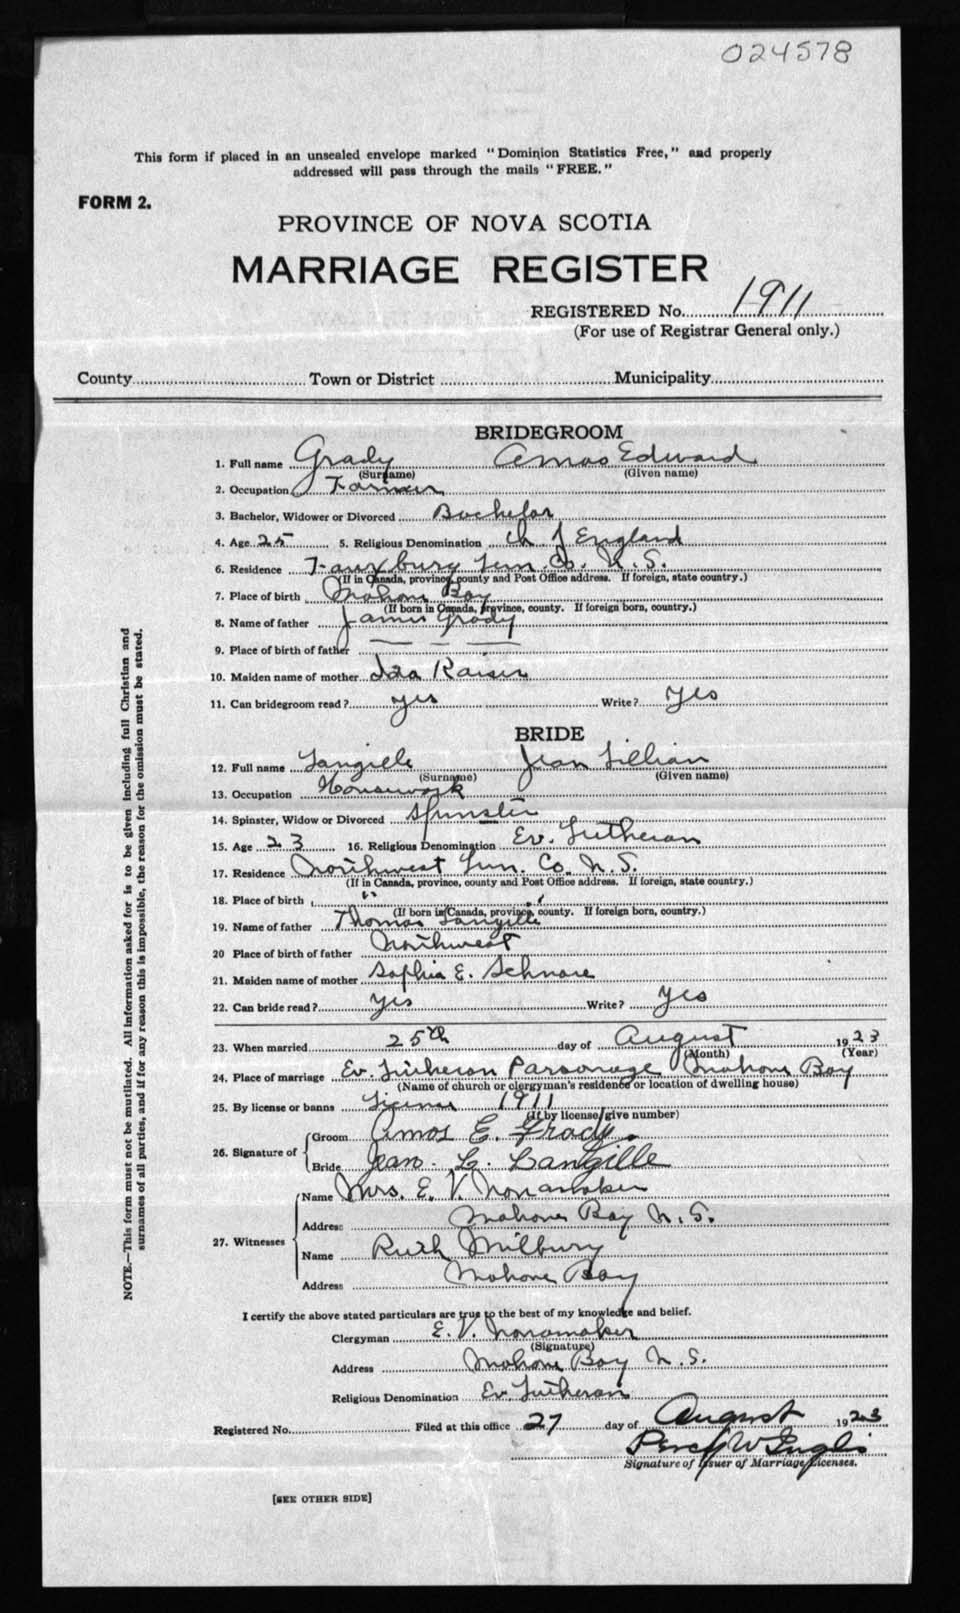 024578
This form if placed in an unsealed envelope marked "Dominion Statistics Free," and properly
addressed will pass through the mails "FREE."
FORM 2.
PROVINCE OF NOVA SCOTIA
MARRIAGE REGISTER
REGISTERED No. 1911
(For use of Registrar General only.)
County Town or District Municipality
BRIDEGROOM
1. Full name Grady Amos Edward
(Surname) (Given name)
2. Occupation Farmer
3. Bachelor, Widower or Divorced Bachelor
4. Age 25 5. Religious Denomination Ch of England
6. Residence Lun. Co. N.S.
(If in Canada, province, county and Post Office address. If foreign, state country.)
7. Place of birth Mahone Bay
(If born in Canada, province, county. If foreign born, country.)
8. Name of father James Grady
9. Place of birth of father — — —
10. Maiden name of mother Raiser
11. Can bridegroom read? yes Write? yes
BRIDE
12. Full name Langille Jean Lillian
(Surname) (Given name)
13. Occupation Housework
14. Spinster, Widow or Divorced Spinster
15. Age 23 16. Religious Denomination Ev. Lutheran
17. Residence Northwest Lun. Co. N.S.
(If in Canada, province, county and Post Office address. If foreign, state country.)
18. Place of birth " "
(If born in Canada, province, county. If foreign born, country.)
19. Name of father Thomas Langille
20 Place of birth of father Northwest
21. Maiden name of mother Sophia E. Schnare
22. Can bride read? yes Write? yes
23. When married 25th day of August 1923
(Month) (Year)
24. Place of marriage Ev. Lutheran Parsonage Mahone Bay
(Name of church or clergyman's residence or location of dwelling house)
25. By license or banns License 1911
(If by license give number)
26. Signature of
Groom Amos E. Grady.
Bride Jean. L. Langille
27. Witnesses
Name Mrs. E. V. Nonamaker
Address Mahone Bay N.S.
Name Ruth Milbury
Address Mahone Bay
I certify the above stated particulars are true to the best of my knowledge and belief.
Clergyman E. V. Nonamaker
(Signature)
Address Mahone Bay N.S.
Religious Denomination Ev. Lutheran
Registered No. Filed at this office 27 day of August 1923
Percy W Inglis
Signature of Issuer of Marriage Licenses.
[SEE OTHER SIDE]
NOTE.—This form must not be mutilated. All information asked for is to be given including full Christian and
surnames of all parties, and if for any reason this is impossible, the reason for the omission must be stated.